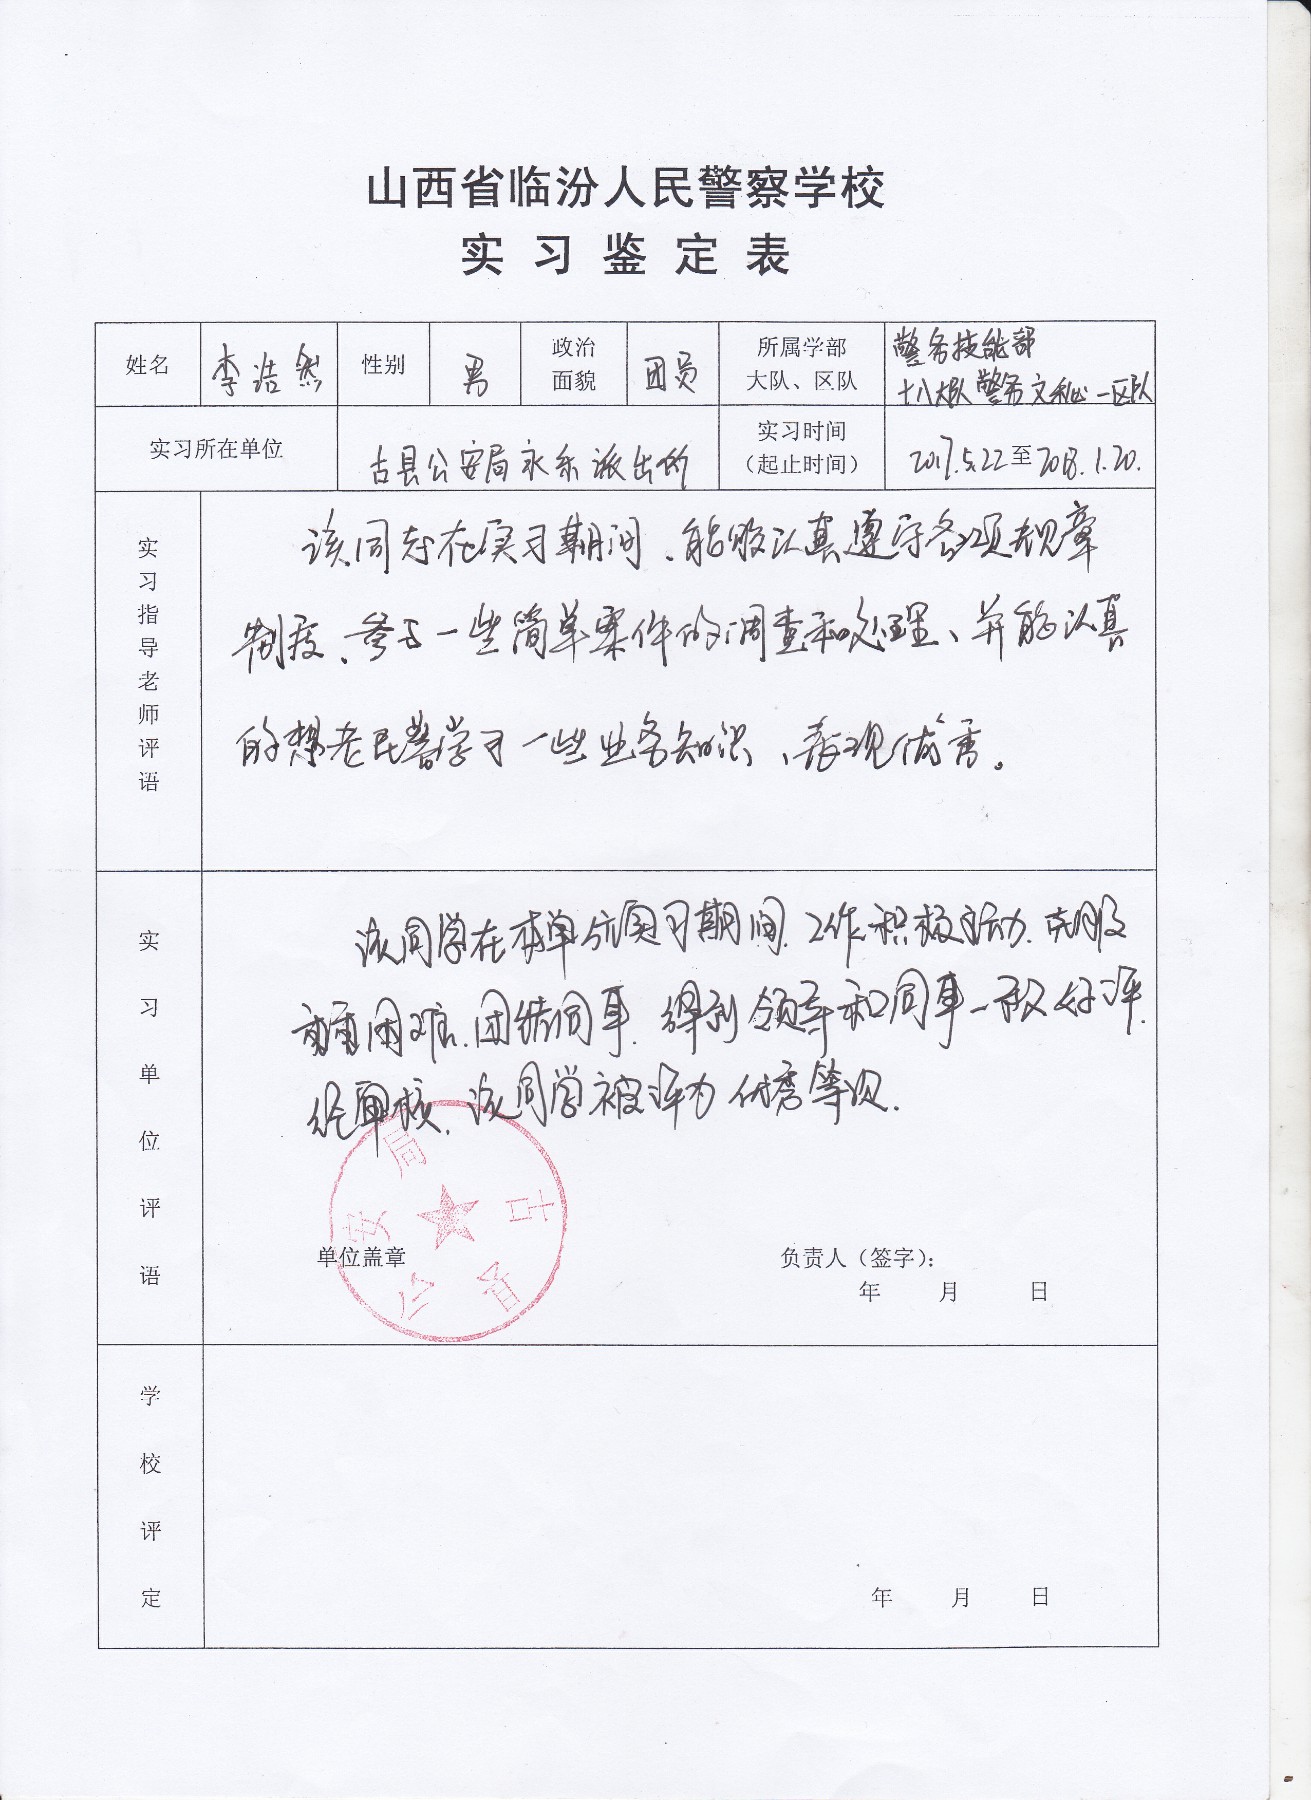 山西省临汾人民警察学校
实习鉴定表
姓名 李浩然 性别 男 政治面貌 团员 所属学部大队、区队 警务技能部
十八大队警务文秘一区队
实习所在单位 古县公安局永乐派出所 实习时间（起止时间） 2017.5.22至2018.1.20.
实习指导老师评语
该同志在实习期间、能够认真遵守各项规章
制度、参与一些简单案件的调查和处理、并能认真
的想老民警学习一些业务知识、表现优秀。
实习单位评语
该同学在本单位实习期间.工作积极主动.克服
困难.团结同事.得到领导和同事一致好评.
经审核.该同学被评为优秀等次.
古县公安局
单位盖章
负责人（签字）：
年 月 日
学校评定
年 月 日